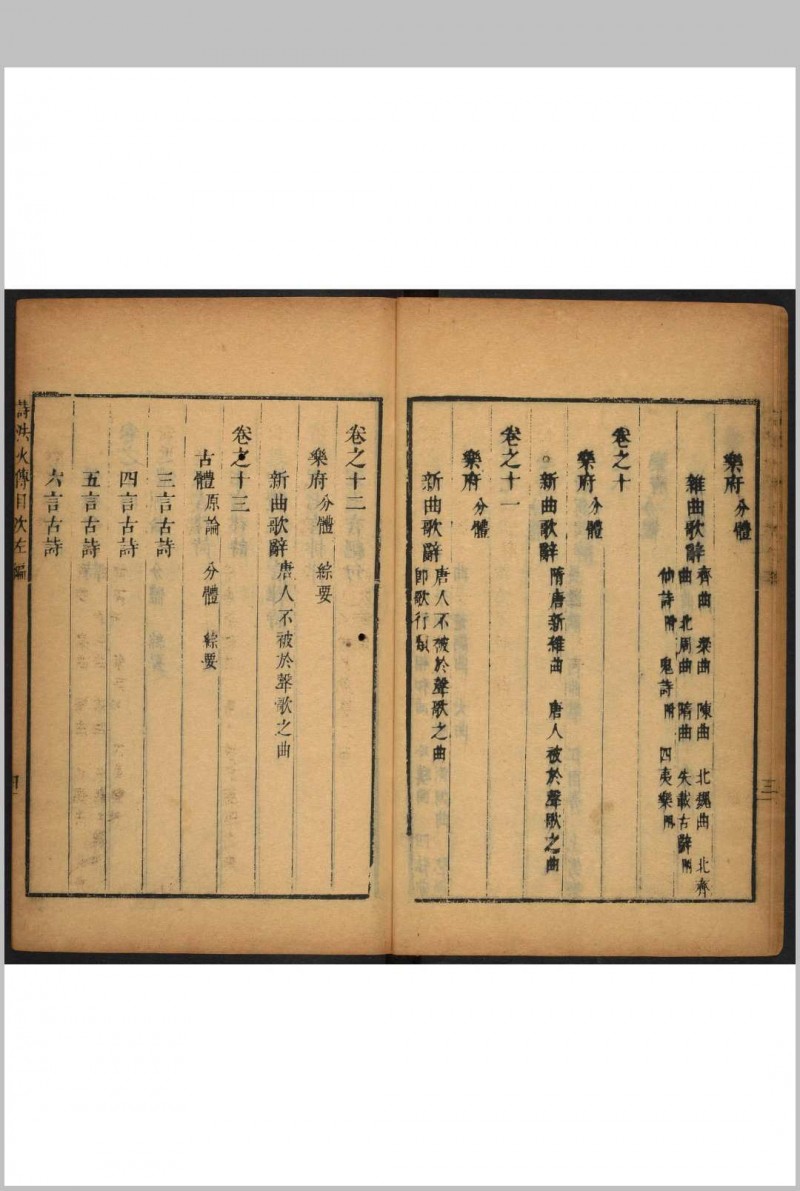 樂府 分體
雜曲歌辭 齊曲 梁曲 陳曲 北魏曲 北齊
曲 北周曲 隋曲 失載古辭附
仙詩附 鬼詩附 四夷樂附
卷之十
樂府 分體
新曲歌辭 隋唐新雜曲 唐人被於聲歌之曲
卷之十一
樂府 分體
新曲歌辭 唐人不被於聲歌之曲
即歌行類
三
卷之十二
樂府 分體 綜要
新曲歌辭 唐人不被於聲歌之曲
卷之十三
古體 原論 分體 綜要
三言古詩
四言古詩
五言古詩
六言古詩
詩洪水傳目次左編